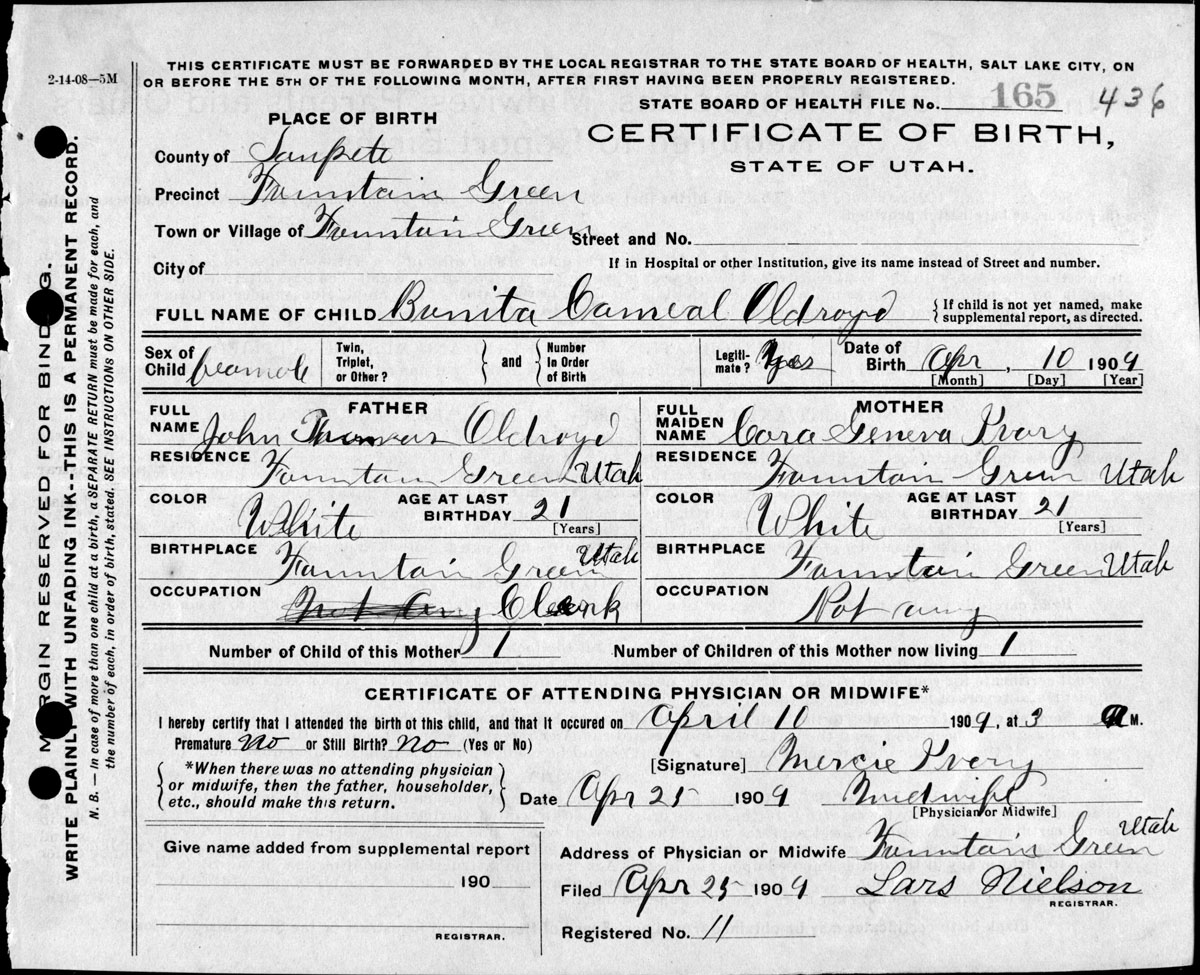 2-14-08—5M
THIS CERTIFICATE MUST BE FORWARDED BY THE LOCAL REGISTRAR TO THE STATE BOARD OF HEALTH, SALT LAKE CITY, ON
OR BEFORE THE 5TH OF THE FOLLOWING MONTH, AFTER FIRST HAVING BEEN PROPERLY REGISTERED.
STATE BOARD OF HEALTH FILE No. 165 436
PLACE OF BIRTH
CERTIFICATE OF BIRTH,
STATE OF UTAH.
County of Sanpete
Precinct Fountain Green
Town or Village of Fountain Green Street and No.
City of
If in Hospital or other Institution, give its name instead of Street and number.
FULL NAME OF CHILD Bunita Oldroyd
{If child is not yet named, make
supplemental report, as directed.
Sex of
Child
Twin,
Triplet,
or Other?
} and {
Number
in Order
of Birth
Legiti-
mate? Yes
Date of
Birth Apr 10 1909
[Month] [Day] [Year]
FATHER
FULL
NAME John Thomas Oldroyd
RESIDENCE Fountain Green Utah
COLOR White
AGE AT LAST
BIRTHDAY 21
[Years]
BIRTHPLACE Fountain Green Utah
OCCUPATION Not Any Clerk
MOTHER
FULL
MAIDEN
NAME Cora Geneva Ivory
RESIDENCE Fountain Green Utah
COLOR White
AGE AT LAST
BIRTHDAY 21
[Years]
BIRTHPLACE Fountain Green Utah
OCCUPATION Not any
Number of Child of this Mother 1 Number of Children of this Mother now living 1
CERTIFICATE OF ATTENDING PHYSICIAN OR MIDWIFE*
I hereby certify that I attended the birth of this child, and that it occured on April 10 1909, at 3 a M.
Premature No or Still Birth? No (Yes or No)
{*When there was no attending physician
or midwife, then the father, householder,
etc., should make this return.}
[Signature] Mercie Ivory
Date Apr 25 1909 Midwife
[Physician or Midwife]
Give name added from supplemental report
190
REGISTRAR.
Address of Physician or Midwife Fountain Green Utah
Filed Apr 25 1909 Lars Nielson
REGISTRAR.
Registered No. 11
MARGIN RESERVED FOR BINDING.
WRITE PLAINLY WITH UNFADING INK--THIS IS A PERMANENT RECORD.
N. B.—In case of more than one child at a birth, a SEPARATE RETURN must be made for each, and
the number of each, in order of birth, stated. SEE INSTRUCTIONS ON OTHER SIDE.